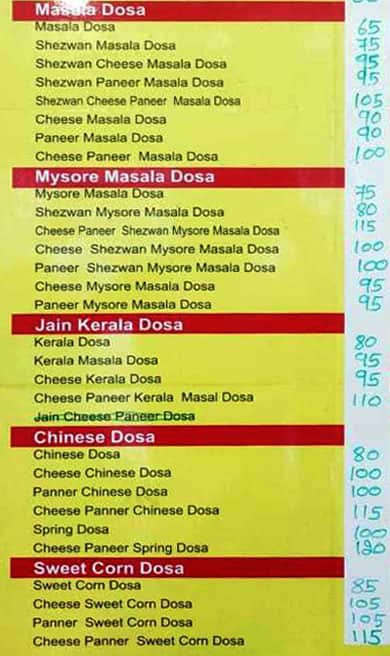 Masala Dosa
Masala Dosa 65
Shezwan Masala Dosa 75
Shezwan Cheese Masala Dosa 95
Shezwan Paneer Masala Dosa 95
Shezwan Cheese Paneer Masala Dosa 105
Cheese Masala Dosa 90
Paneer Masala Dosa 90
Cheese Paneer Masala Dosa 100
Mysore Masala Dosa
Mysore Masala Dosa 75
Shezwan Mysore Masala Dosa 80
Cheese Paneer Shezwan Mysore Masala Dosa 115
Cheese Shezwan Mysore Masala Dosa 100
Paneer Shezwan Mysore Masala Dosa 100
Cheese Mysore Masala Dosa 95
Paneer Mysore Masala Dosa 95
Jain Kerala Dosa
Kerala Dosa 80
Kerala Masala Dosa 95
Cheese Kerala Dosa 95
Cheese Paneer Kerala Masal Dosa 110
Jain Cheese Paneer Dosa
Chinese Dosa
Chinese Dosa 80
Cheese Chinese Dosa 100
Panner Chinese Dosa 100
Cheese Panner Chinese Dosa 115
Spring Dosa 100
Cheese Paneer Spring Dosa 120
Sweet Corn Dosa
Sweet Corn Dosa 85
Cheese Sweet Corn Dosa 105
Panner Sweet Corn Dosa 105
Cheese Panner Sweet Corn Dosa 115